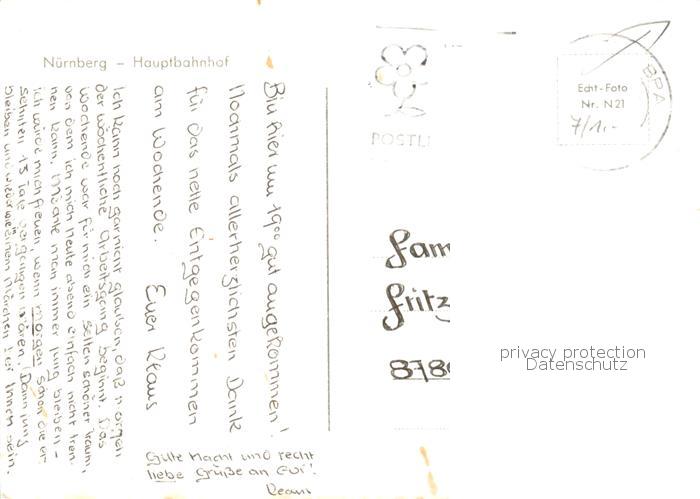 Nürnberg – Hauptbahnhof
Bin hier um 19⁰⁰ gut angekommen!
Nochmals allerherzlichsten Dank
für das nette Entgegenkommen
am Wochende.
Euer Klaus
Ich kann noch garnicht glauben, daß morgen
der wöchentliche Arbeitsgang beginnt. Das
Wochende war für mich ein selten schöner Traum,
von dem ich mich heute abend einfach nicht tren-
nen kann. Möchte man immer jung bleiben –
ich würde mich freuen, wenn morgen schon die er-
sehnten 13 Tage vergangen wären. (Dann jung
bleiben und wieder wie einem Märchen bei Ihnen sein.
Gute Nacht und recht
liebe Grüße an Evi!
Klaus
POSTL
Echt-Foto
Nr. N 21
7/1.-
BPA
Fam
Fritz
878
privacy protection
Datenschutz